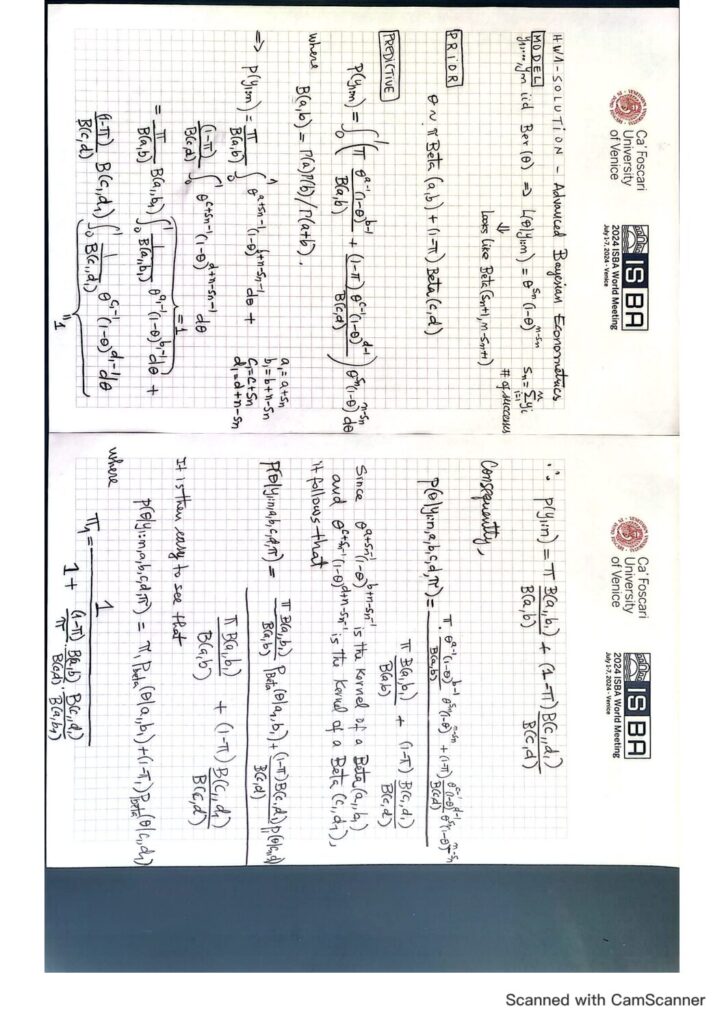 Ca' Foscari
University
of Venice
ISBA
2024 ISBA World Meeting
July 1-7, 2024 - Venice
HW1 - SOLUTION - Advanced Bayesian Econometrics
MODEL
y₁,...,yₙ iid Ber(θ) ⇒ L(θ|y₁:ₙ) = θ^{Sₙ} (1-θ)^{n-Sₙ} Sₙ = Σ_{i=1}^{n} yᵢ
⇓ # of successes
Looks like Beta(Sₙ+1, n-Sₙ+1)
PRIOR
θ ~ π Beta(a,b) + (1-π) Beta(c,d)
PREDICTIVE
p(y₁:ₙ) = ∫₀¹ (π θ^{a-1}(1-θ)^{b-1} / B(a,b) + (1-π) θ^{c-1}(1-θ)^{d-1} / B(c,d)) θ^{Sₙ}(1-θ)^{n-Sₙ} dθ
where B(a,b) = Γ(a)Γ(b)/Γ(a+b).
⇒ p(y₁:ₙ) = π / B(a,b) ∫₀¹ θ^{a+Sₙ-1}(1-θ)^{b+n-Sₙ-1} dθ +
(1-π) / B(c,d) ∫₀¹ θ^{c+Sₙ-1}(1-θ)^{d+n-Sₙ-1} dθ
a₁ = a+Sₙ
b₁ = b+n-Sₙ
c₁ = c+Sₙ
d₁ = d+n-Sₙ
= π / B(a,b) B(a₁,b₁) ∫₀¹ 1 / B(a₁,b₁) θ^{a₁-1}(1-θ)^{b₁-1} dθ +
= 1
(1-π) / B(c,d) B(c₁,d₁) ∫₀¹ 1 / B(c₁,d₁) θ^{c₁-1}(1-θ)^{d₁-1} dθ
= 1
Ca' Foscari
University
of Venice
ISBA
2024 ISBA World Meeting
July 1-7, 2024 - Venice
∴ p(y₁:ₙ) = π B(a₁,b₁) / B(a,b) + (1-π) B(c₁,d₁) / B(c,d)
Consequently,
p(θ|y₁:ₙ,a,b,c,d,π) = π · θ^{a-1}(1-θ)^{b-1} / B(a,b) θ^{Sₙ}(1-θ)^{n-Sₙ} + (1-π) θ^{c-1}(1-θ)^{d-1} / B(c,d) θ^{Sₙ}(1-θ)^{n-Sₙ}
π B(a₁,b₁) / B(a,b) + (1-π) B(c₁,d₁) / B(c,d)
Since θ^{a+Sₙ-1}(1-θ)^{b+n-Sₙ-1} is the kernel of a Beta(a₁,b₁)
and θ^{c+Sₙ-1}(1-θ)^{d+n-Sₙ-1} is the kernel of a Beta(c₁,d₁),
it follows that
p(θ|y₁:ₙ,a,b,c,d,π) = π B(a₁,b₁) / B(a,b) p_{Beta}(θ|a₁,b₁) + (1-π) B(c₁,d₁) / B(c,d) p(θ|c₁,d₁)
π B(a₁,b₁) / B(a,b) + (1-π) B(c₁,d₁) / B(c,d)
It is then easy to see that
p(θ|y₁:ₙ,a,b,c,d,π) = π₁ p_{beta}(θ|a₁,b₁) + (1-π₁) p_{beta}(θ|c₁,d₁)
where
π₁ = 1 / 1 + (1-π) / π · B(a,b) / B(c,d) · B(c₁,d₁) / B(a₁,b₁)
Scanned with CamScanner